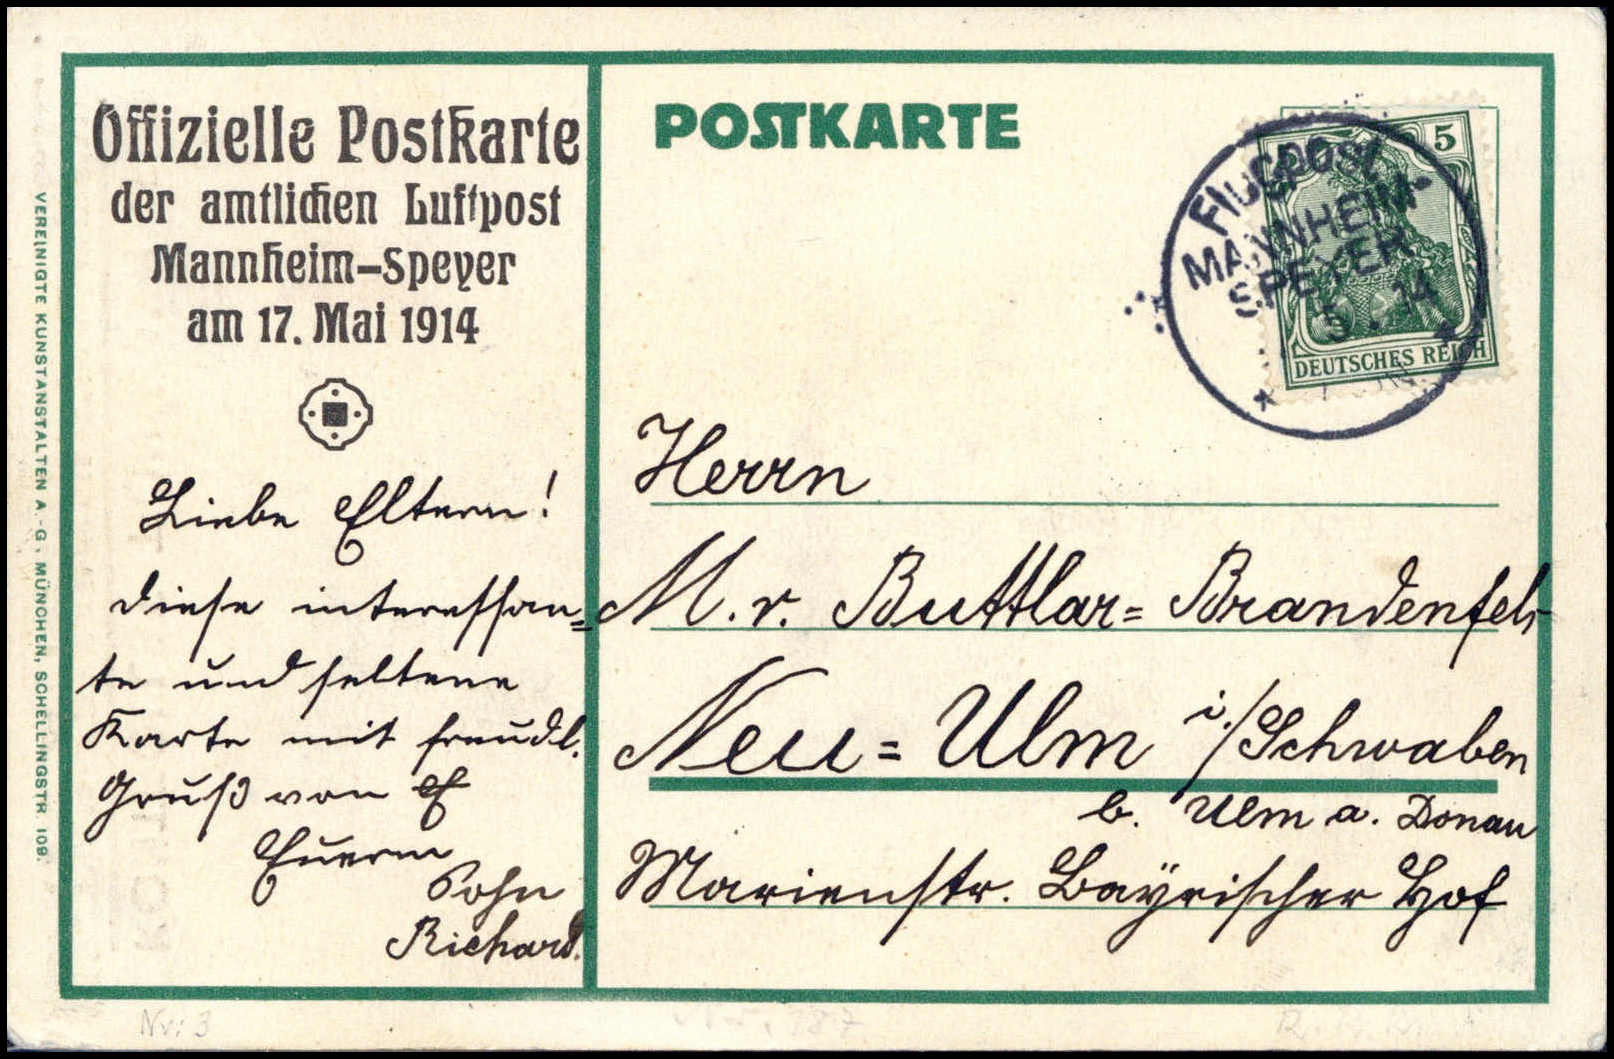 Offizielle Postkarte
der amtlichen Luftpost
Mannheim-Speyer
am 17. Mai 1914
Liebe Eltern!
diese interessan=
te und seltene
Karte mit freudl.
Gruß von E
Euerm
Sohn
Richard.
VEREINIGTE KUNSTANSTALTEN A.-G., MÜNCHEN, SCHELLINGSTR. 109.
POSTKARTE
5
DEUTSCHES REICH
FlUGPOST
MANNHEIM-
SPEYER
5.14
Herrn
M. v. Buttlar=Brandenfels
Neu=Ulm i/Schwaben
b. Ulm a. Donau
Marienstr. Bayrischer Hof
Nr: 3